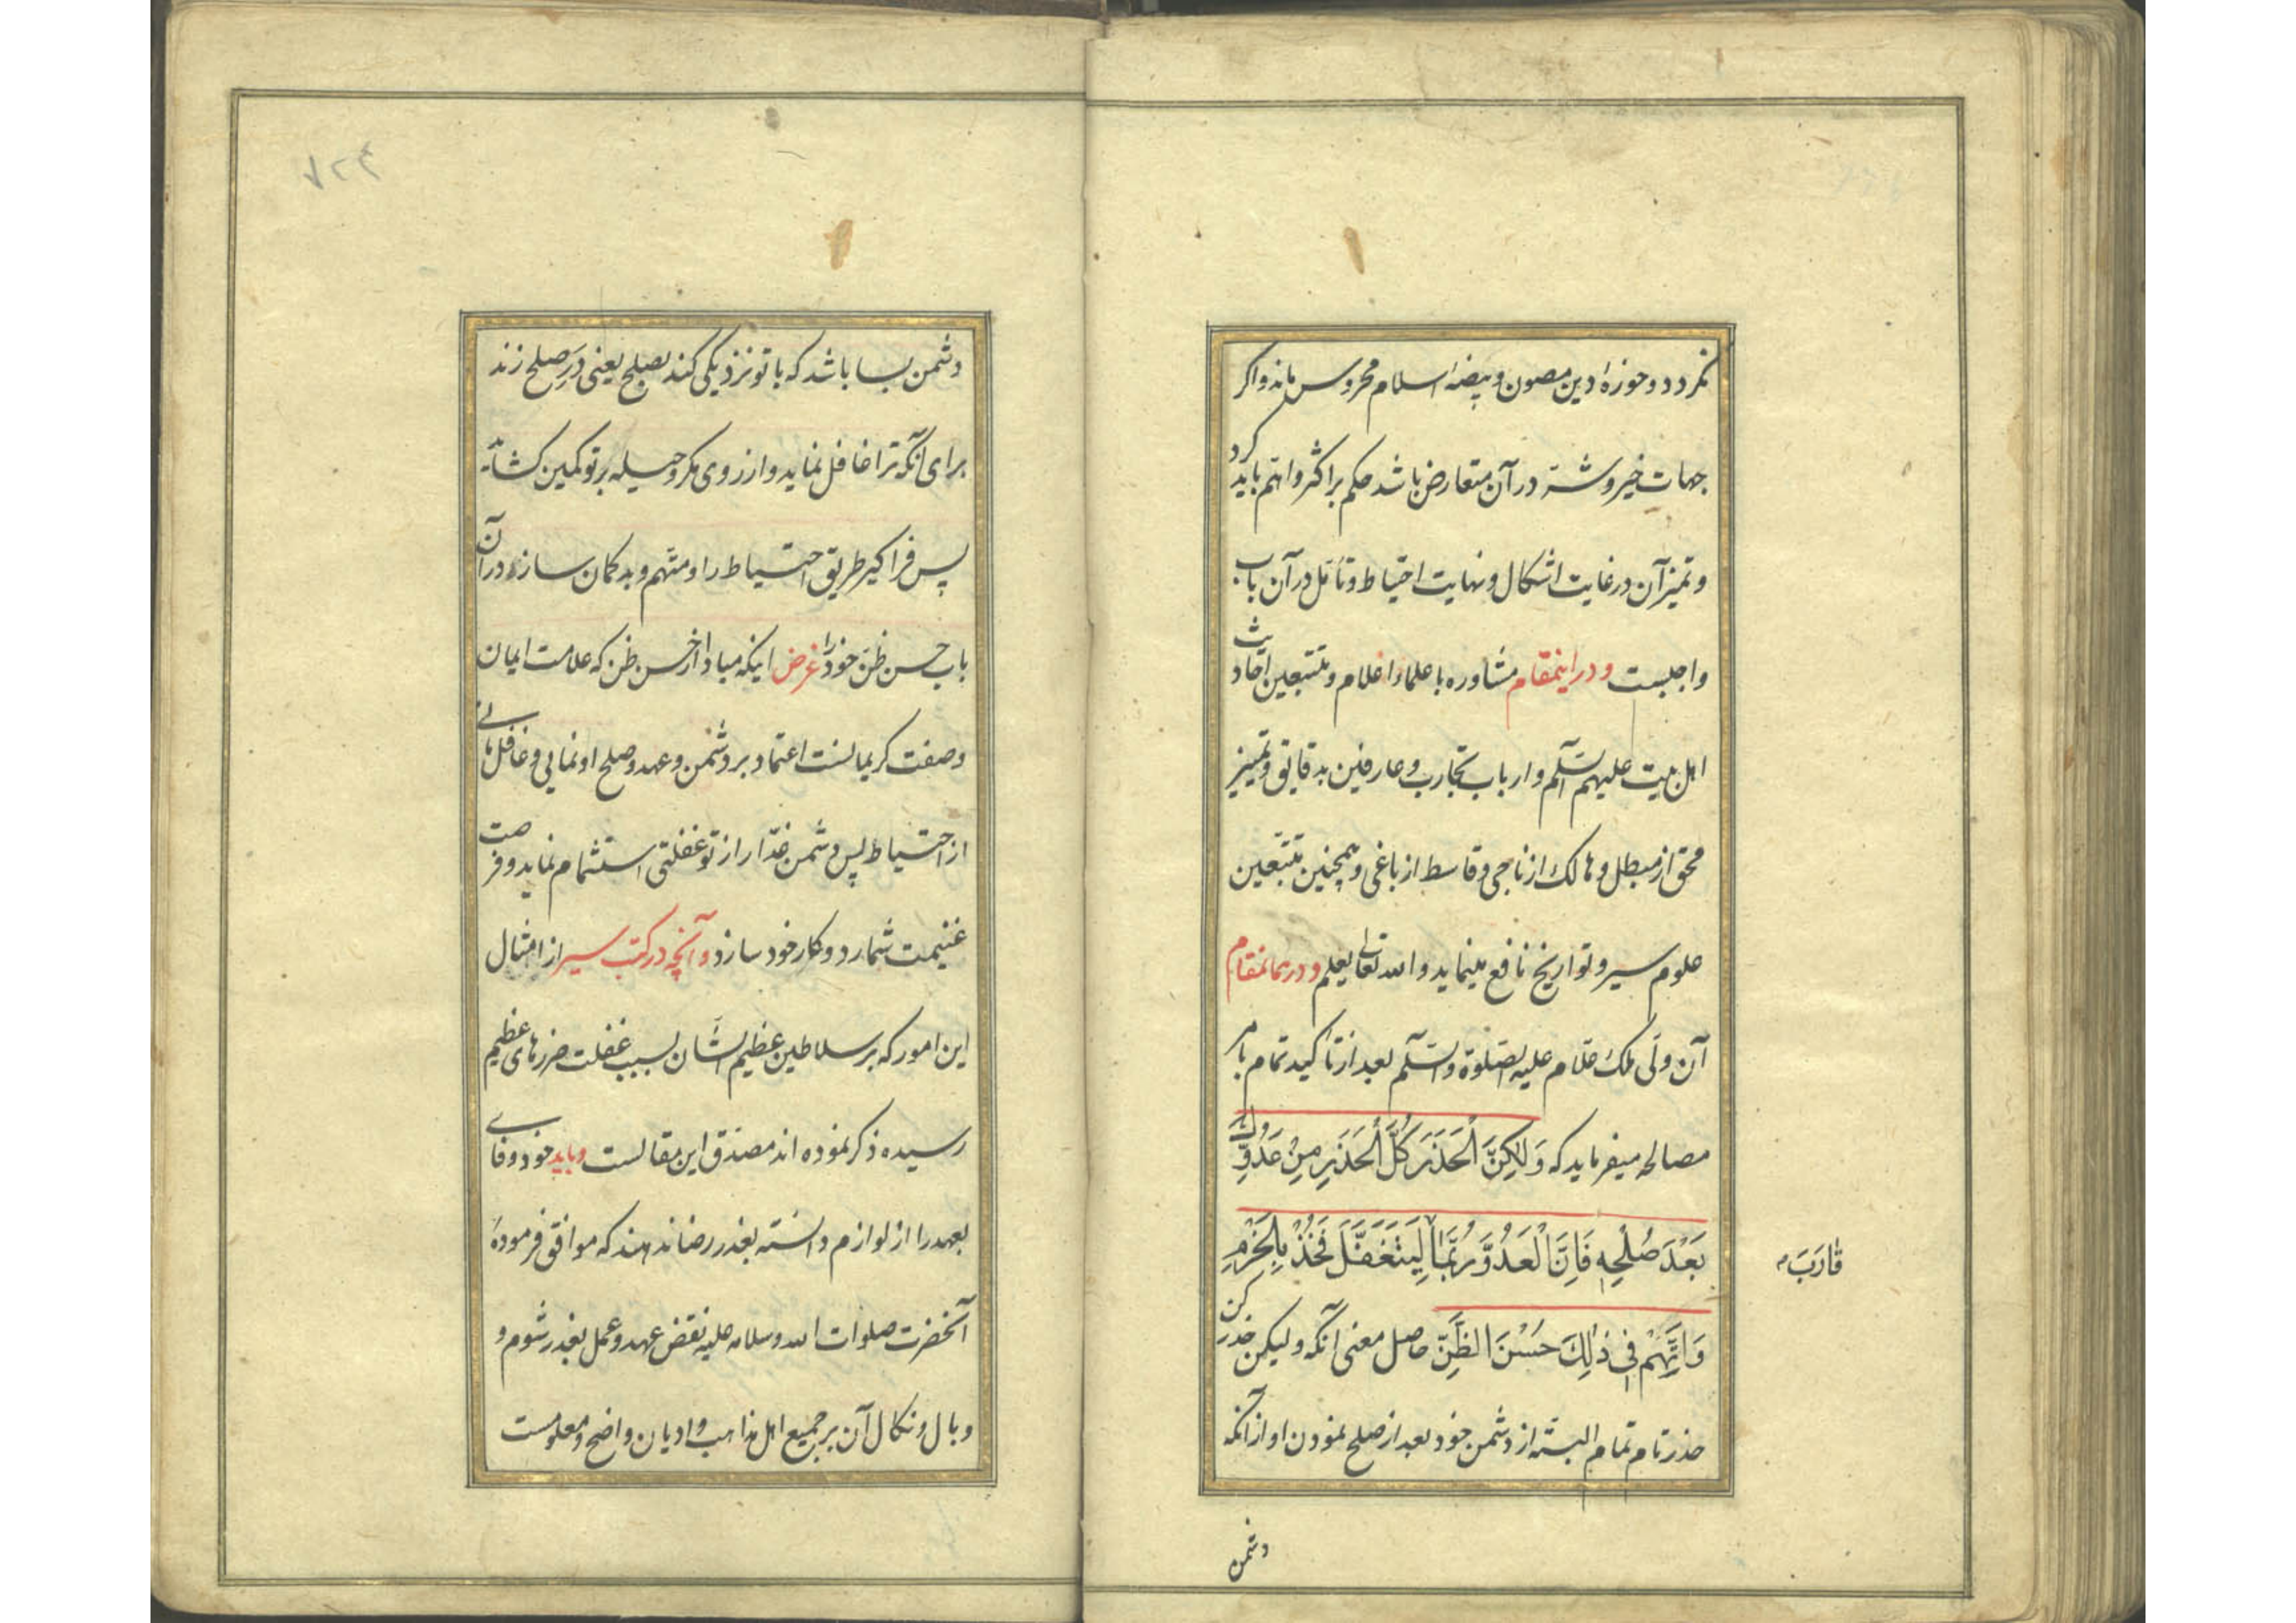 نکردد و حوزهٔ دین مصون و بیضهٔ اسلام محروس ماند و اکر
جهات خیر و شر در آن متعارض باشد حکم بر اکثر و اهم باید کرد
و تمیز آن در غایت اشکال و نهایت احتیاط و تأمل در آن باب
واجبست و در اینمقام مشاوره با علماء اعلام و متتبعین احادیث
اهل بیت علیهم السّلم و ارباب تجارب و عارفین بدقایق و تمییز
محق از مبطل و هالک از ناجی و قاسط از باغی و همچنین متتبعین
علوم سیر و تواریخ نافع مینماید و الله تعالی یعلم و در همانمقام
آن ولی ملک علام علیه الصّلوة والسّلم بعد از تاکید تمام بامر
مصالحه میفرماید که وَلٰکِنَّ الْحَذَرَ کُلَّ الْحَذَرِ مِنْ عَدُوِّکَ
بَعْدَ صُلْحِهِ فَاِنَّ الْعَدُوَّ رُبَّمَا لِیَتَغَفَّلَ فَخُذْ بِالْحَزْمِ
قارَبَ
وَ اتَّهِمْ فِی ذٰلِکَ حُسْنَ الظَّنِّ حاصل معنی آنکه و لیکن حذر کن
حذر تام تمام البته از دشمن خود بعد از صلح نمودن او از آنکه
دشمن
۷۲۴
دشمن بسا باشد که با تو نزدیکی کند بصلح یعنی دَرِ صلح زند
برای آنکه ترا غافل نماید و از روی مکر و حیله بر تو کمین کشاید
پس فرا کیر طریق احتیاط را و متّهم و بدکمان ساز در آن
باب حسن ظنّ خود را غرض اینکه مبادا از حسن ظن که علامت ایمان
و صفت کریمانست اعتماد بر دشمن و عهد و صلح او نمایی و غافل مانی
از احتیاط پس دشمن غدّار از تو غفلتی استشمام نماید و فرصت
غنیمت شمارد و کار خود سازد و آنچه در کتب سیر از امثال
این امور که بر سلاطین عظیم الشّان بسبب غفلت ضررهای عظیم
رسیده ذکر نموده اند مصدق این مقالست و باید خود وفای
بعهد را از لوازم دانسته بغدر رضا ندهند که موافق فرمودهٔ
آنحضرت صلوات الله و سلامه علیه نقض عهد و عمل بغدر شوم و
وبال و نکال آن بر جمیع اهل مذاهب و ادیان واضح و معلومست